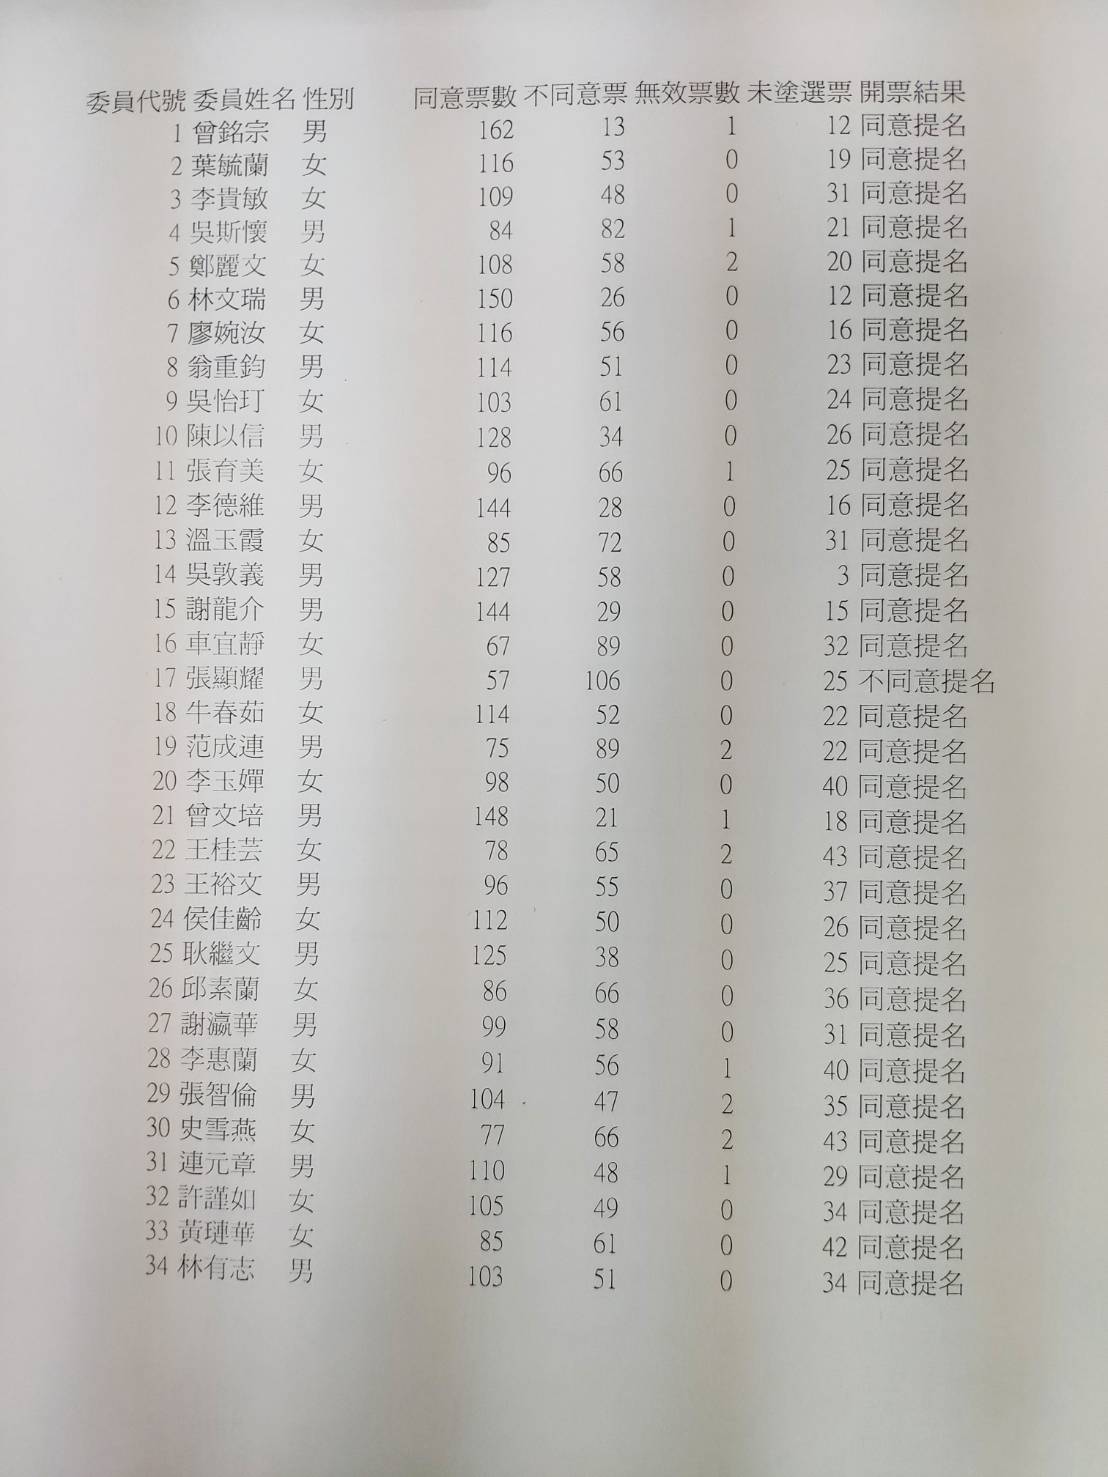 委員代號 委員姓名 性別 同意票數 不同意票 無效票數 未塗選票 開票結果
1 曾銘宗 男 162 13 1 12 同意提名
2 葉毓蘭 女 116 53 0 19 同意提名
3 李貴敏 女 109 48 0 31 同意提名
4 吳斯懷 男 84 82 1 21 同意提名
5 鄭麗文 女 108 58 2 20 同意提名
6 林文瑞 男 150 26 0 12 同意提名
7 廖婉汝 女 116 56 0 16 同意提名
8 翁重鈞 男 114 51 0 23 同意提名
9 吳怡玎 女 103 61 0 24 同意提名
10 陳以信 男 128 34 0 26 同意提名
11 張育美 女 96 66 1 25 同意提名
12 李德維 男 144 28 0 16 同意提名
13 溫玉霞 女 85 72 0 31 同意提名
14 吳敦義 男 127 58 0 3 同意提名
15 謝龍介 男 144 29 0 15 同意提名
16 車宜靜 女 67 89 0 32 同意提名
17 張顯耀 男 57 106 0 25 不同意提名
18 牛春茹 女 114 52 0 22 同意提名
19 范成連 男 75 89 2 22 同意提名
20 李玉嬋 女 98 50 0 40 同意提名
21 曾文培 男 148 21 1 18 同意提名
22 王桂芸 女 78 65 2 43 同意提名
23 王裕文 男 96 55 0 37 同意提名
24 侯佳齡 女 112 50 0 26 同意提名
25 耿繼文 男 125 38 0 25 同意提名
26 邱素蘭 女 86 66 0 36 同意提名
27 謝瀛華 男 99 58 0 31 同意提名
28 李惠蘭 女 91 56 1 40 同意提名
29 張智倫 男 104 47 2 35 同意提名
30 史雪燕 女 77 66 2 43 同意提名
31 連元章 男 110 48 1 29 同意提名
32 許謹如 女 105 49 0 34 同意提名
33 黃璉華 女 85 61 0 42 同意提名
34 林有志 男 103 51 0 34 同意提名